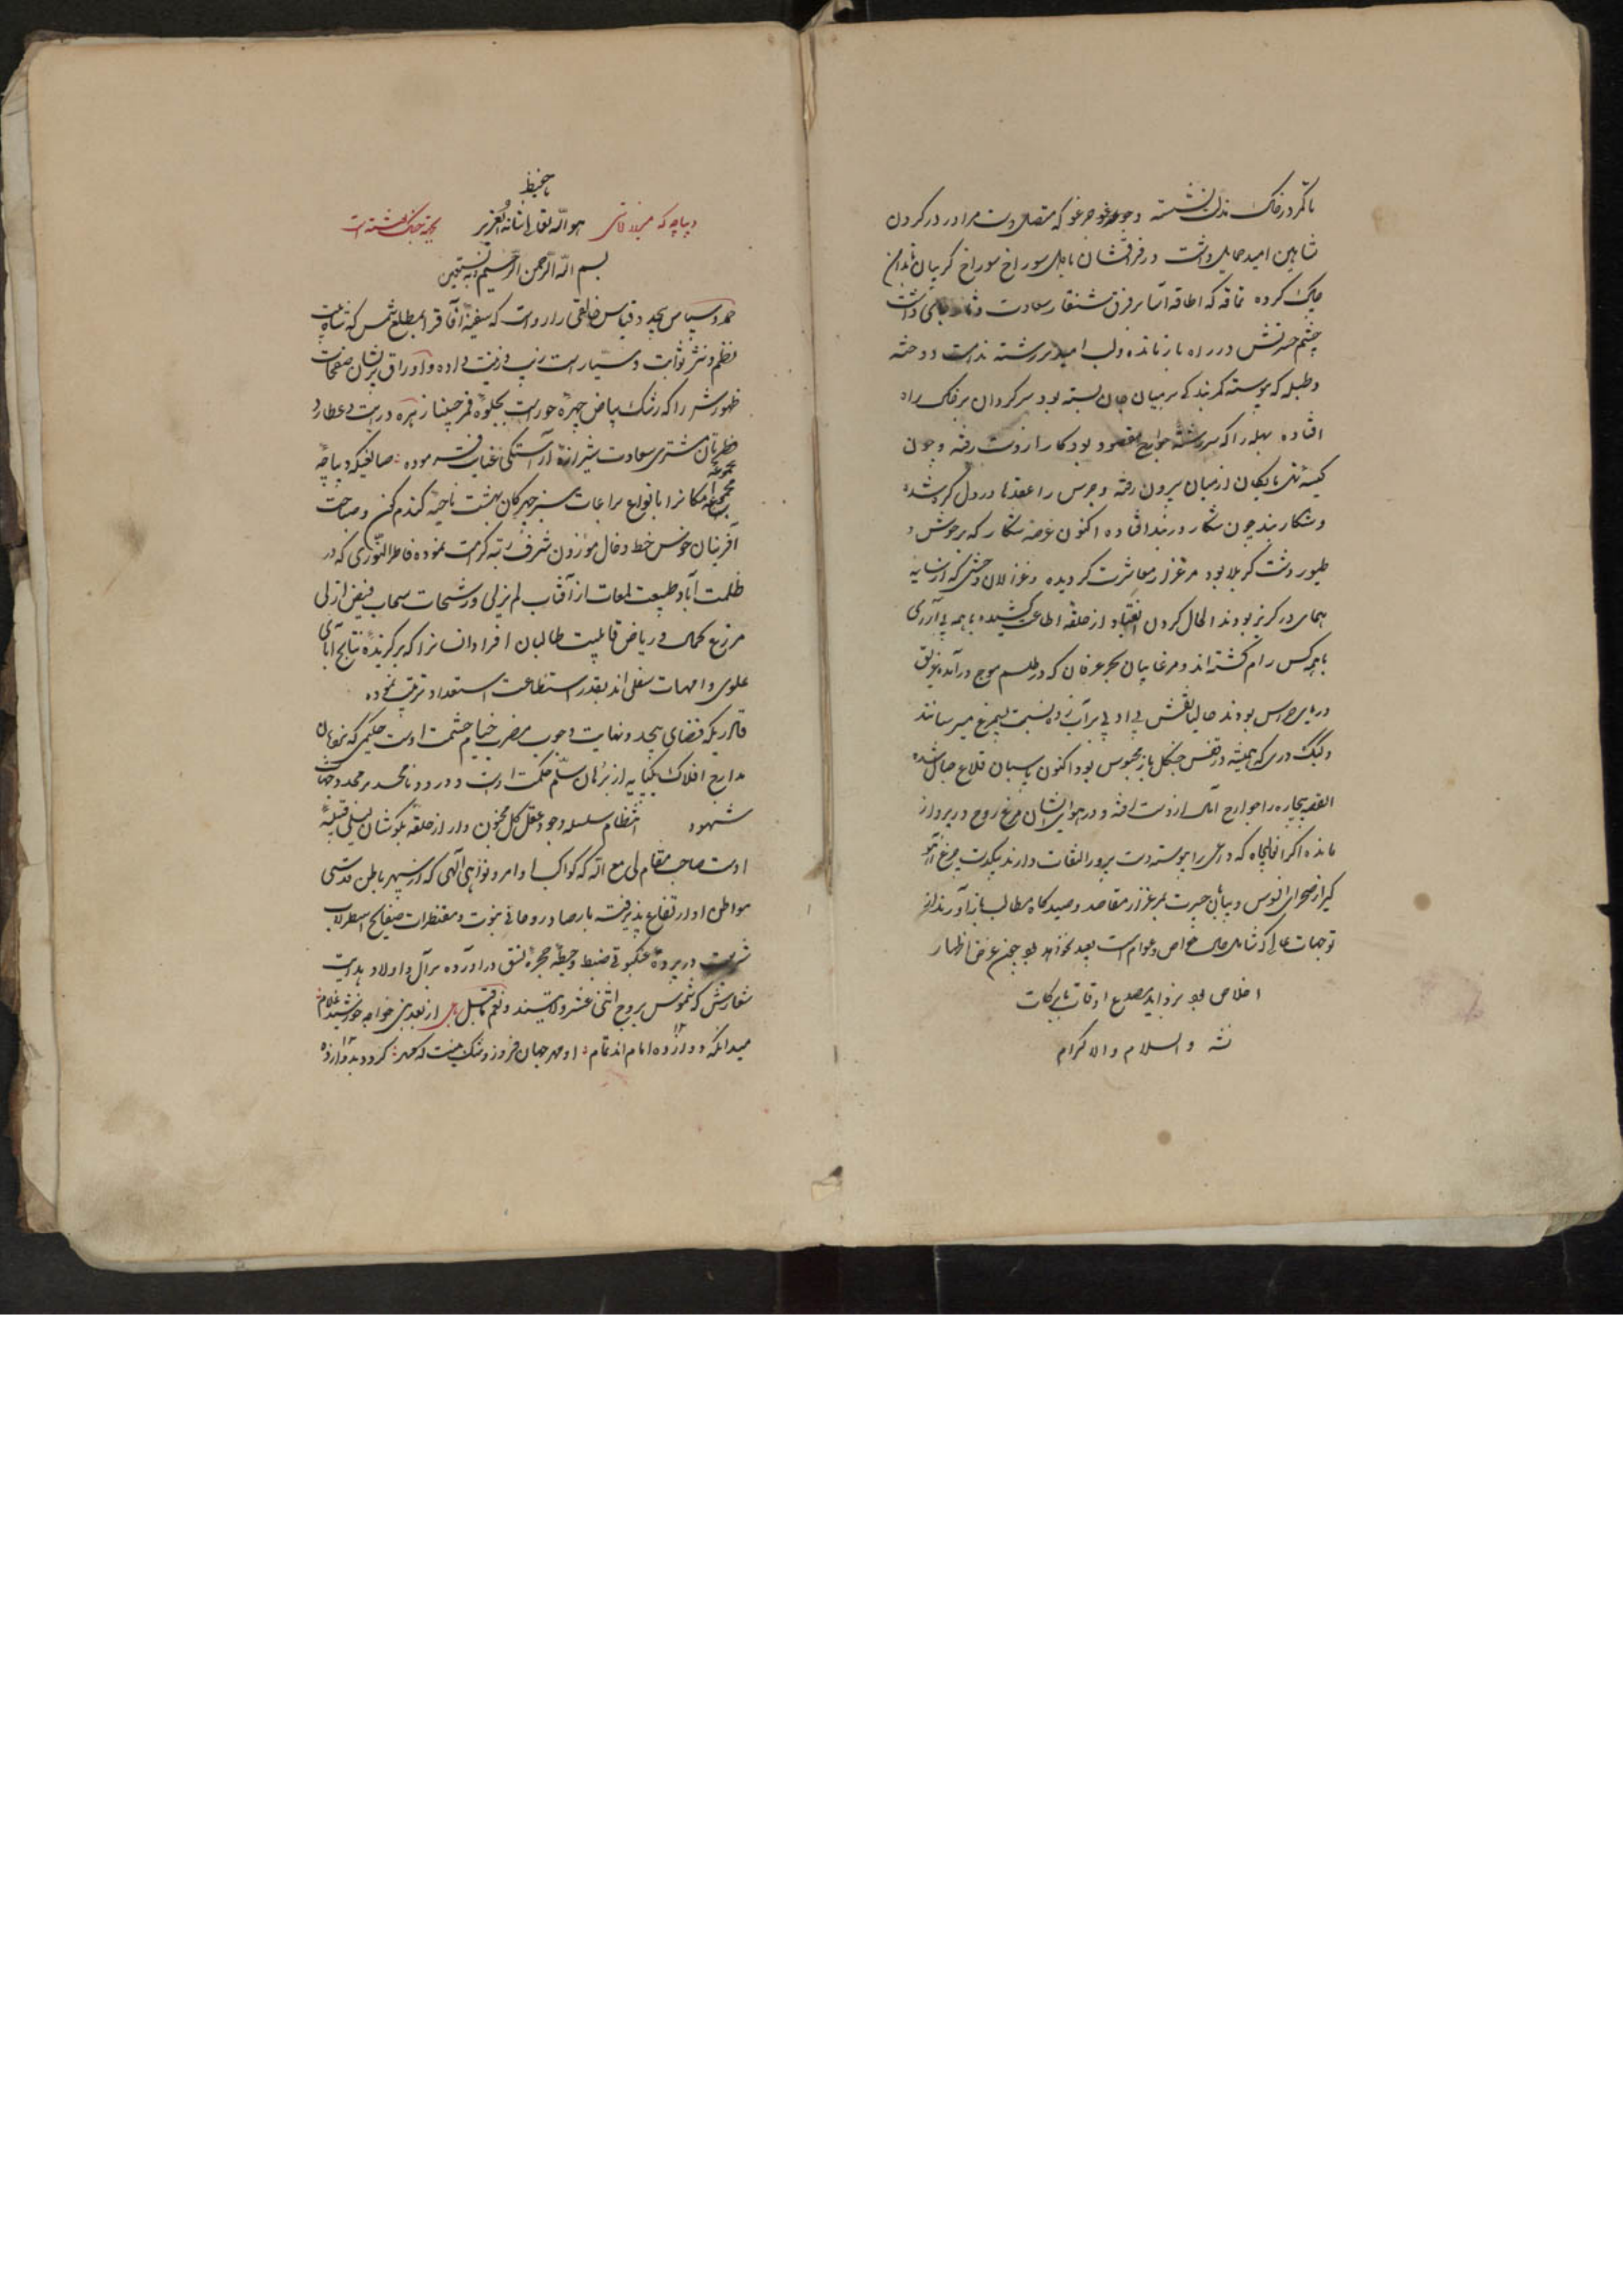 تا کمر در خاک مذلت نشسته وجوه غو جرغو که متصل دست مرا در در کردن
شاهین امید حمایل داشت در فراقشان با دل سوراخ سوراخ کریبان تا دامن
چاک کرده تماقه که اطاقه آسا بر فرق شنقار سعادت داشت
چشم حسرتش در راه باز مانده ولب امید بر رشته ندامت دوخته
وطبله که پیوسته کمر بندکی بر میان جان بسته بود سرکردان بر خاک راه
افتاده بهله را که سر رشته جوارح مقصود بود کار از دست رفته وچون
کیسه تهی مایکان از میان بیرون رفته وجرس را عقدها در دل کره شده
وشکار بند چون شکار در بند افتاده اکنون عرصه شکار که بر وحوش و
طیور دشت کربلا بود مرغزار معاشرت کردیده وغزالان وحشی که از سایه
همای در کریز بودند الحال کردن انقیاد از حلقه اطاعت کشیده با همه بی آزری
با همه کس رام کشته اند ومرغابیان بحر عرفان که در طلسم موج در آمده غریق
دریای هراس بودند حالیا نقش بی ادبی بر آب زده نسبت بسیمرغ میرسانند
وکبک دری که همیشه در قفس چنکل باز محبوس بود اکنون پاسبان قلاع جبال شده
القصه بیچاره را جوارح آمال از دست رفته ودر هوای ایشان مرغ روح در پرواز
مانده اکر که داعی را پیوسته دست پرور التفات دارند بیکدست مرغ
کیر از صحرای افسوس وبیابان حیرت بمرغزار مقاصد وصیدکاه مطالب باز آورند از
توجهات عالی که شامل حال خواص وعوام است بعید نخواهد بود چون غرض اظهار
اخلاص بود بزواید مصدع اوقات با برکات
نشد والسلام والاکرام
یا حفیظ
دیباچه که هو الله تعالی شانه العزیز بجهة نوشته است
بسم الله الرحمن الرحیم وبه نستعین
حمد وسپاس بیحد وقیاس خالقی را رواست که سفینه آفاق را بمطلع شمس که شاه بیت
نظم ونثر ثوابت وسیار است زیب وزینت داده واوراق پریشان صفحات
ظهورش را که رشک بیاض چهره حور است بجلوه قمر جبینان زهره درایت وعطارد
نظرتان مشتری سعادت شیرازه آراستکی عنایت فرموده صانعیکه دیباچه
مجموعه امکانرا بانواع مراعات سبز چهرکان بهشت ناحیه کندم کن وصباحت
آفرینان خوش خط وخال موزون شرف رتبه کرامت نموده فاطر النوری که در
ظلمت آباد طبیعت لمعات از آفتاب لم یزلی ورشحات سحاب فیض ازلی
مزرع کمال وریاض قابلیت طالبان افراد انسانرا که برکزیده نتایج آبای
علوی وامهات سفلی اند بقدر استطاعت استعداد تربیت نموده
قادریکه فضای بیحد ونهایت وجوب مضرب خیام حشمت اوست حکیمی که
مدارج افلاک یکپایه از نردبان سلم حکمت اوست ودرود نامحدود بر محدد جهات
شهود انتظام سلسله وجود عقل کل مجنون وار از حلقه بکوشان لیلی قبیله
اوست صاحب مقام لی مع الله که کواکب اوامر ونواهی الهی که از سپهر باطن قدسی
مواطن او ارتفاع پذیرفته بارصاد روحانی نبوت ومقنطرات صفایح اسطرلاب
شریعت در پرده عنکبوتی ضبط وحیطه حجره نسق در آورده بر آل واولاد هدایت
شعارش که شموس بروج اثنی عشر ولایتند ونعم ما قیل از بعد نبی خواجه خورشید غلام
میدانکه دوازده امام اند تمام او مهر جهان فروز وشک نیست که مهر کردد بدوازده